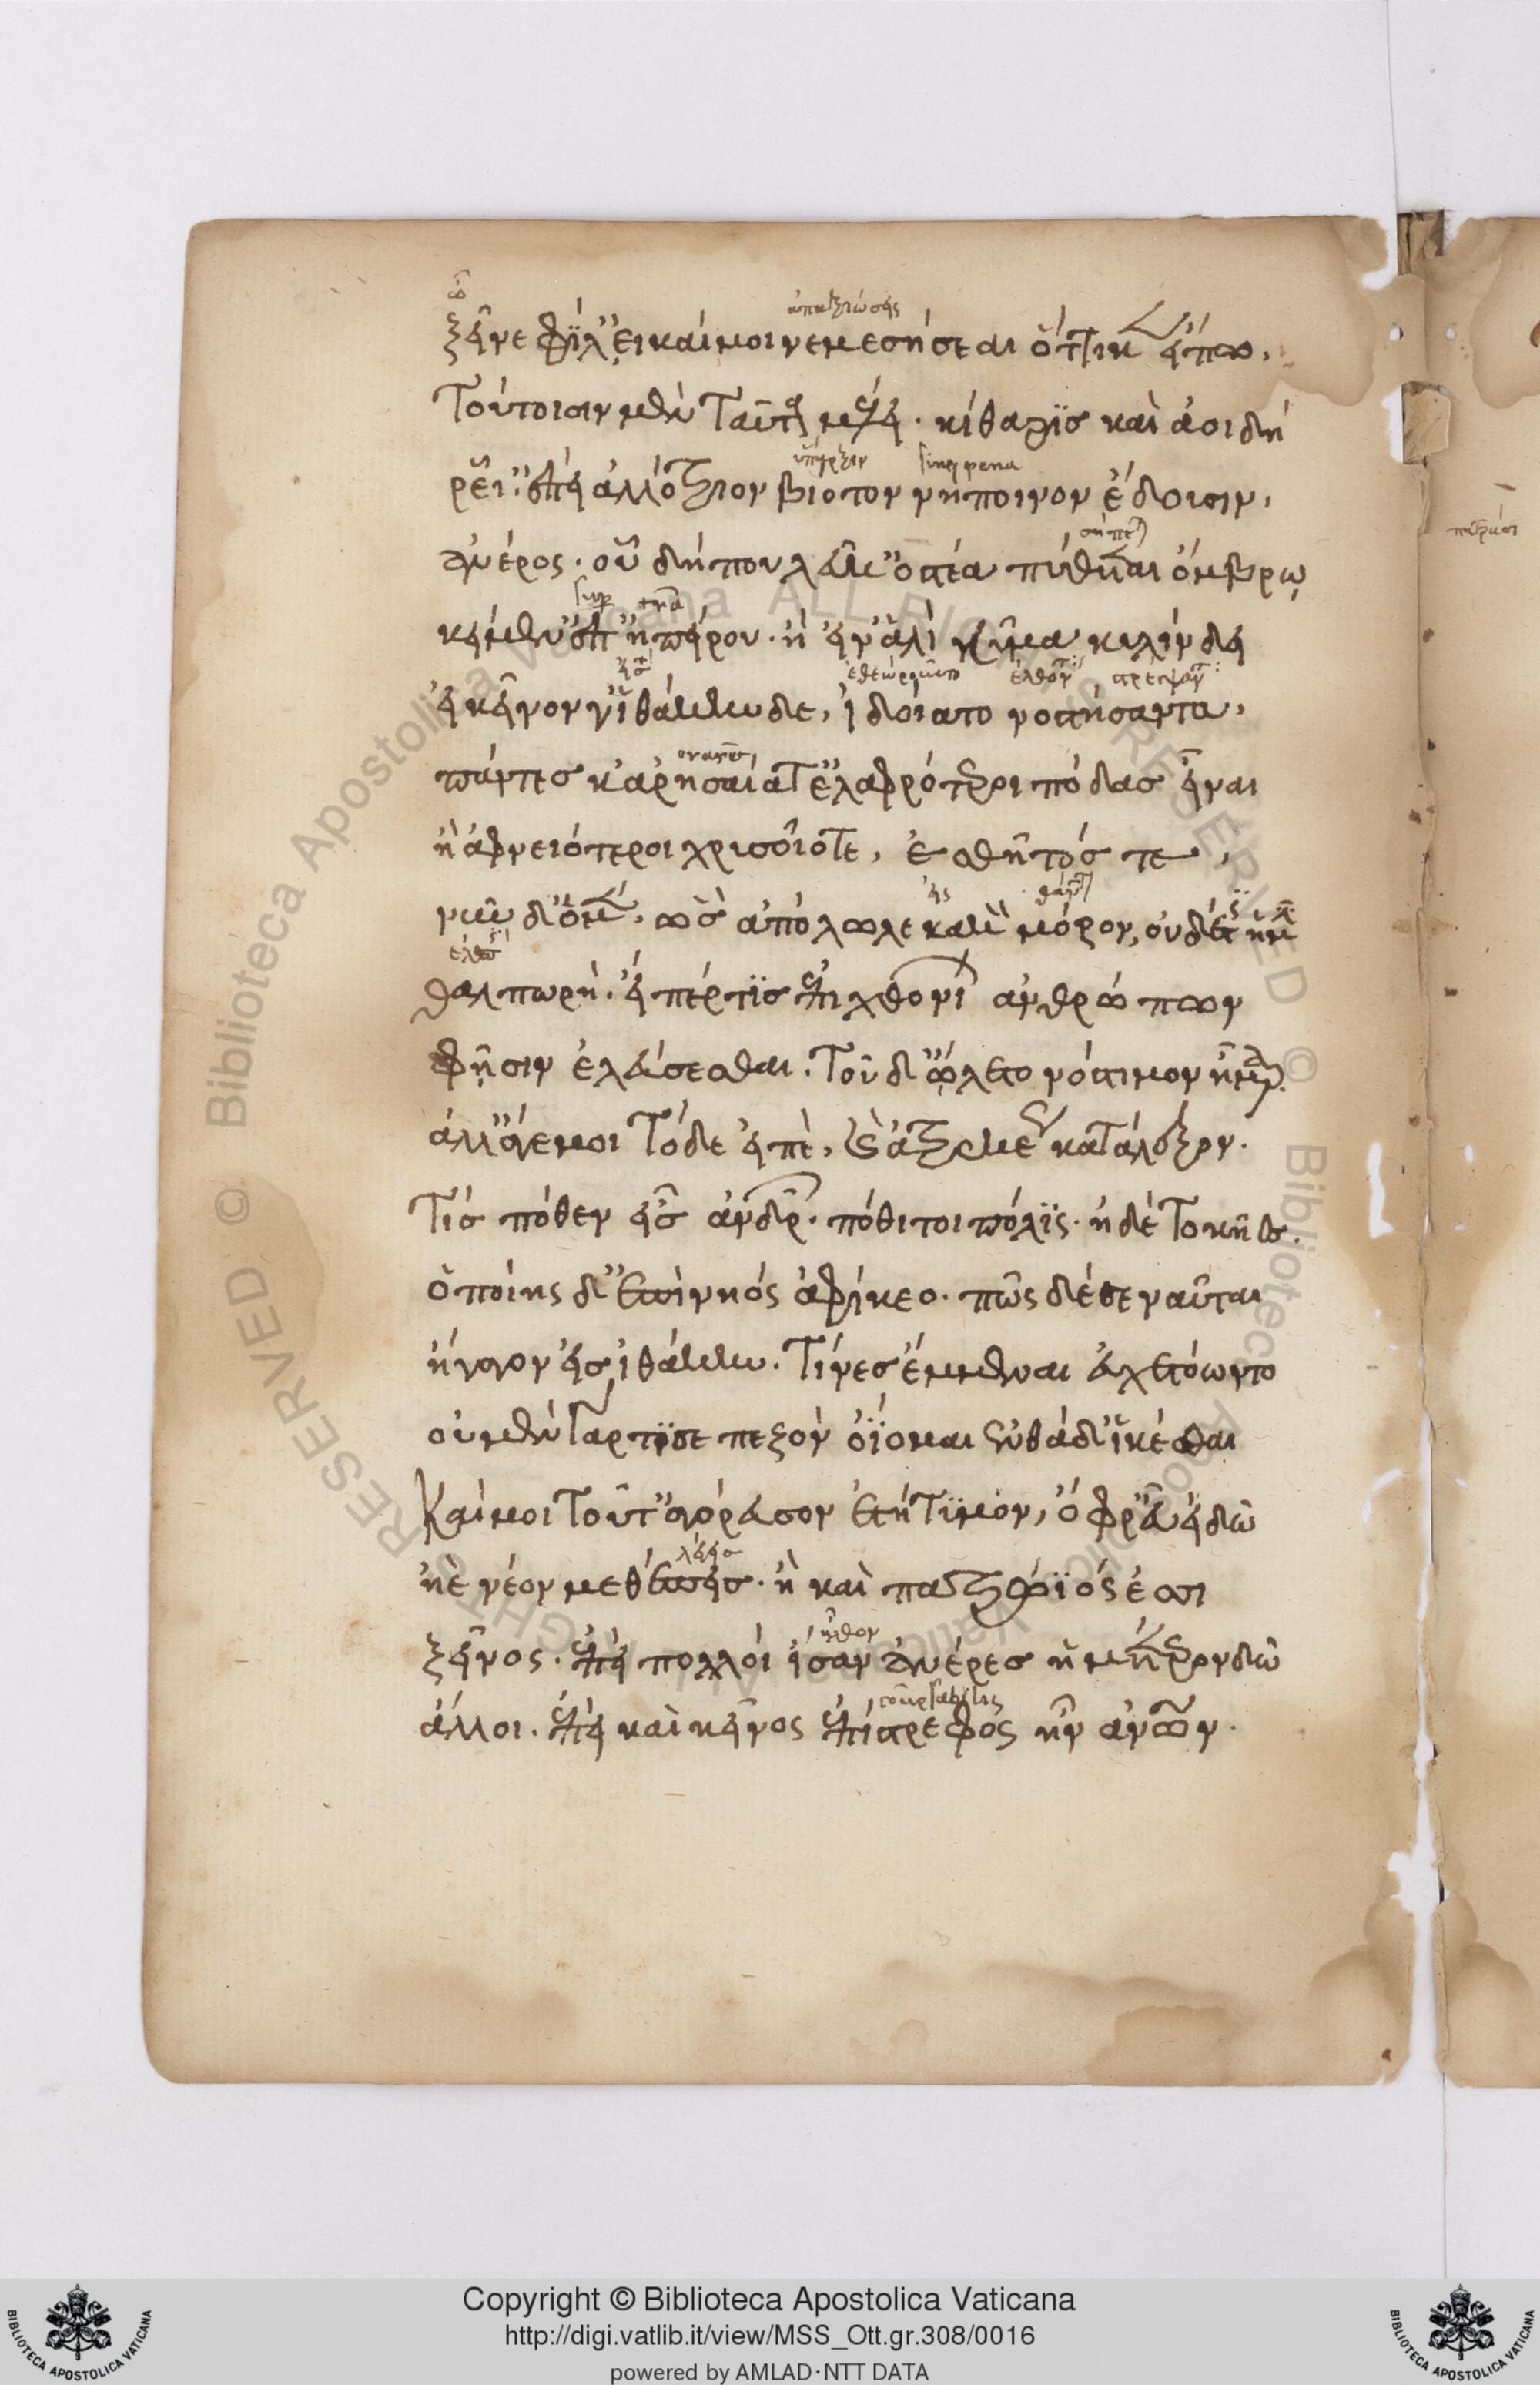 ὦ
ἀπαξιώσεις
ξεῖνε φίλ' εἰ καί μοι νεμεσήσεαι ὅττι κεν εἴπω,
Τούτοισιν μὲν ταῦτα μέλει. κίθαρϊσ καὶ ἀοιδὴ
ὕπαρξιν sine pena
ῥεῖ'. ἐπεὶ ἀλλότριον βίοτον νήποινον ἔδουσιν,
σήπεται
ἀνέρος. οὗ δήπου λεύκ' ὀστέα πύθεται ὄμβρω
super terra
κείμεν' ἐπ' ἠπείρου. ἢ εἰν ἁλὶ κῦμα κυλίνδει
εἰς ἐθεώρουντο ἐλθόντα στρέψαντα
εἰ κεῖνον γ' ἰθάκηνδε, ἰδοίατο νοστήσαντα,
πάντες κ' ἀρησαίατ' ἐλαφρότεροι πόδασ εἶναι
ἢ ἀφνειότεροι χρυσοῖό τε, ἐσθῆτόσ τε,
εἰς θάνατον
νῦν δ' ὁ μὲν, ὣσ ἀπόλωλε κακὸν μόρον, οὐδέ τις ἡμῖν
θαλπωρὴ. εἴ πέρ τϊσ ἐπιχθονίων ἀνθρώπων
φῆσιν ἐλεύσεσθαι. τοῦ δ' ὤλετο νόστιμον ἦμαρ.
ἀλλ' ἄγε μοι τόδε εἰπὲ, καὶ ἀτρεκέως κατάλεξον.
Τίσ πόθεν εἶσ ἀνδρῶν. πόθι τοι πόλϊς. ἠδὲ τοκῆες.
ὁποίης δ' ἐπὶ νηὸς ἀφίκεο. πῶς δέ σε ναῦται
ἤγαγον εἰσ ἰθάκην. Τίνεσ ἔμμεναι εὐχετόωντο
οὐ μὲν γάρ τϊ σε πεζὸν ὀΐομαι ἐνθάδ' ἱκέσθαι
Καί μοι τοῦτ' ἀγόρευσον ἐτήτϊμον, ὄφρ' εὖ εἰδῶ
ἠὲ νέον μεθέπεισ. ἢ καὶ πατρώϊός ἐσσι
ἦλθον
ξεῖνος. ἐπεὶ πολλοὶ ἴσαν ἀνέρεσ ἡμέτερον δῶ
conversabilis
ἄλλοι. ἐπεὶ καὶ κεῖνος ἐπίστρεφός ἦν ἀνθρώπων.
Copyright © Biblioteca Apostolica Vaticana
http://digi.vatlib.it/view/MSS_Ott.gr.308/0016
powered by AMLAD·NTT DATA